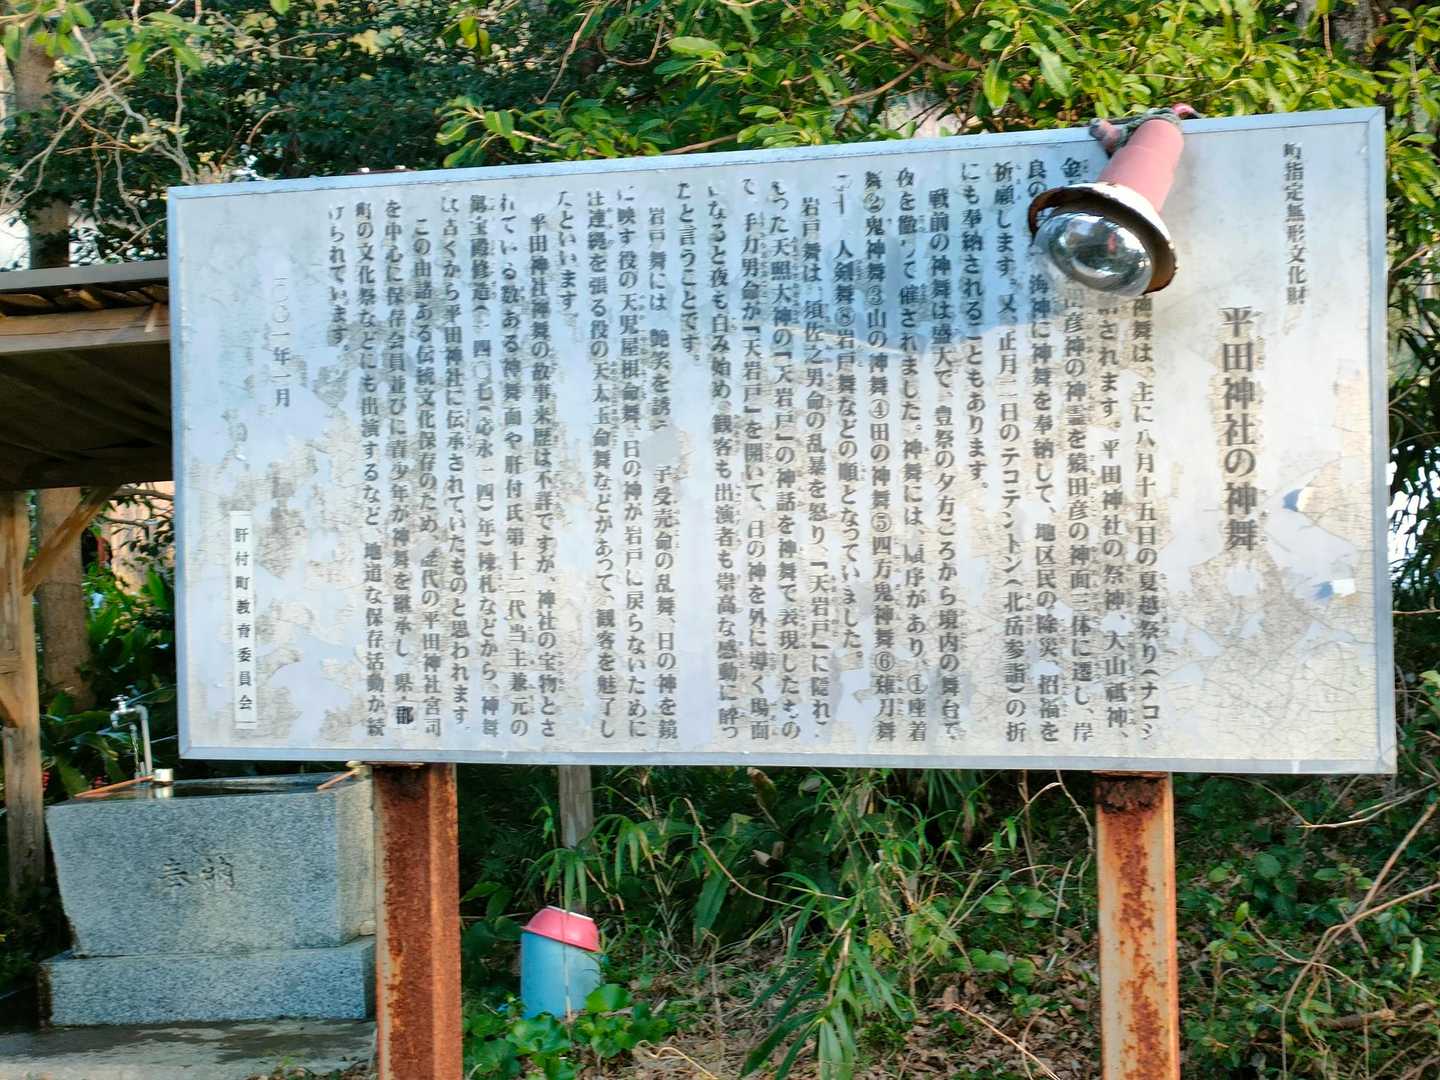 町指定無形文化財
平田神社の神舞
神舞は、主に八月十五日の夏越祭り(ナゴシ
されます。平田神社の祭神、大山祗神、
彦神の神霊を猿田彦の神面三体に遷し、岸
良の 海神に神舞を奉納して、地区民の除災、招福を
祈願します。又、正月二日のテコテンドン(北岳参詣)の折
にも奉納されることもあります。
戦前の神舞は盛大で、豊祭の夕方ごろから境内の舞台で、
夜を徹して催されました。神舞には、順序があり、①座着
舞②鬼神舞③山の神舞④田の神舞⑤四方鬼神舞⑥薙刀舞
人剣舞⑧岩戸舞などの順となっていました。
岩戸舞は、須佐之男命の乱暴を怒り、「天岩戸」に隠れ
った天照大神の「天岩戸」の神話を神舞で表現したもの
で、手力男命が「天岩戸」を開いて、日の神を外に導く場面
になると夜も白み始め、観客も出演者も崇高な感動に酔っ
たと言うことです。
岩戸舞には 艶笑を誘う 宇受売命の乱舞、日の神を鏡
に映す役の天児屋根命舞、日の神が岩戸に戻らないために
注連縄を張る役の天太玉命舞などがあって、観客を魅了し
たといいます。
平田神社神舞の故事来歴は不詳ですが、神社の宝物とさ
れている数ある神舞面や肝付氏第十二代当主兼元の
第宝殿修造(一四〇七(応永一四)年)棟札などから、神舞
は古くから平田神社に伝承されていたものと思われます。
この由緒ある伝統文化保存のため、歴代の平田神社宮司
を中心に保存会員並びに青少年が神舞を継承し、県・郡
町の文化祭などにも出演するなど、地道な保存活動が続
けられています。
二〇〇一年一月
肝付町教育委員会
奉納